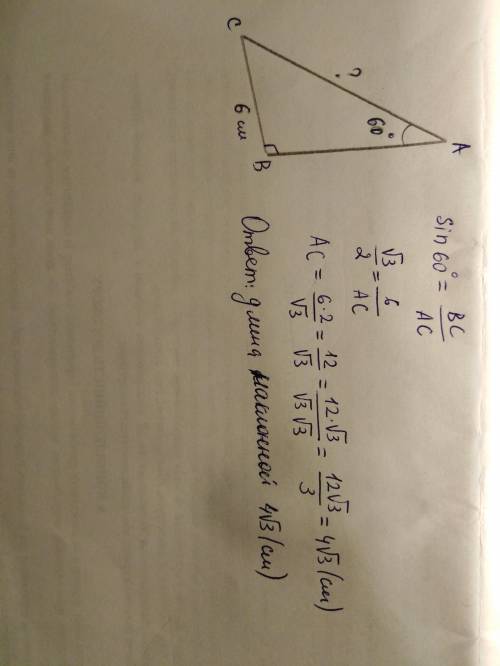 A
60°
?
C
6 см
B
sin 60° = BC/AC
√3/2 = 6/AC
AC = 6·2/√3 = 12/√3 = 12·√3/√3√3 = 12√3/3 = 4√3 (см)
Ответ: длина наклонной 4√3 (см)